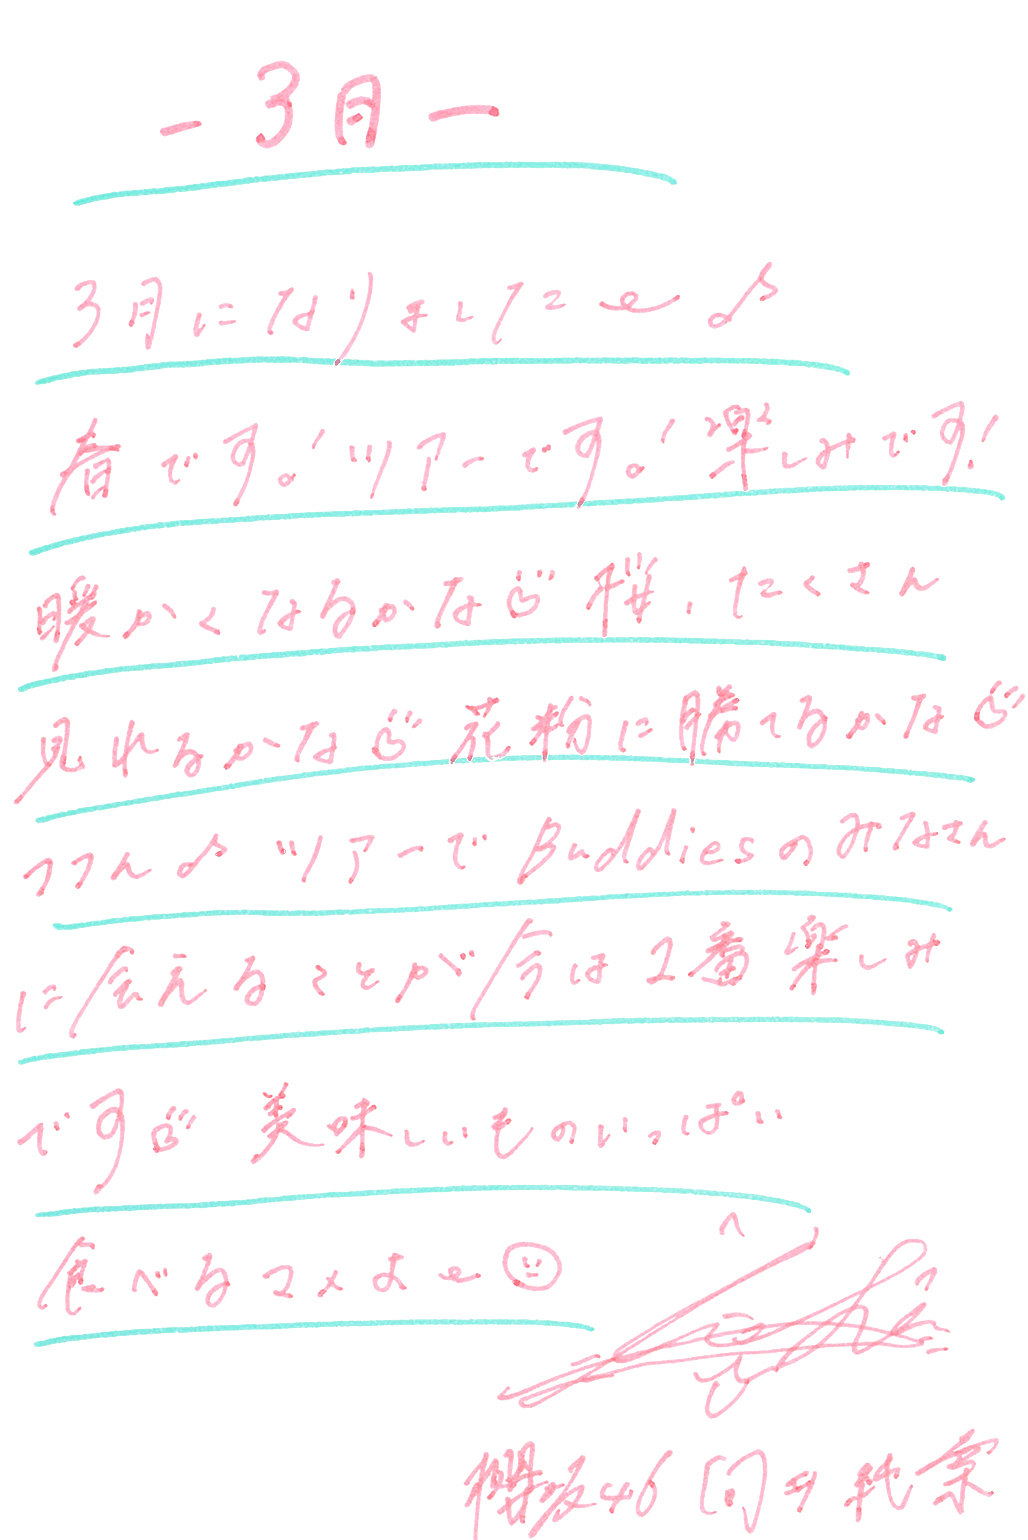 - 3月 -
3月になりました〜♪
春です。！ツアーです。！楽しみです！
暖かくなるかな 桜、たくさん
見れるかな 花粉に勝てるかな
フフん♪ ツアーでBuddiesのみなさん
に会えることが今は1番楽しみ
です 美味しいものいっぱい
食べるコメよ〜
櫻坂46 向井純葉